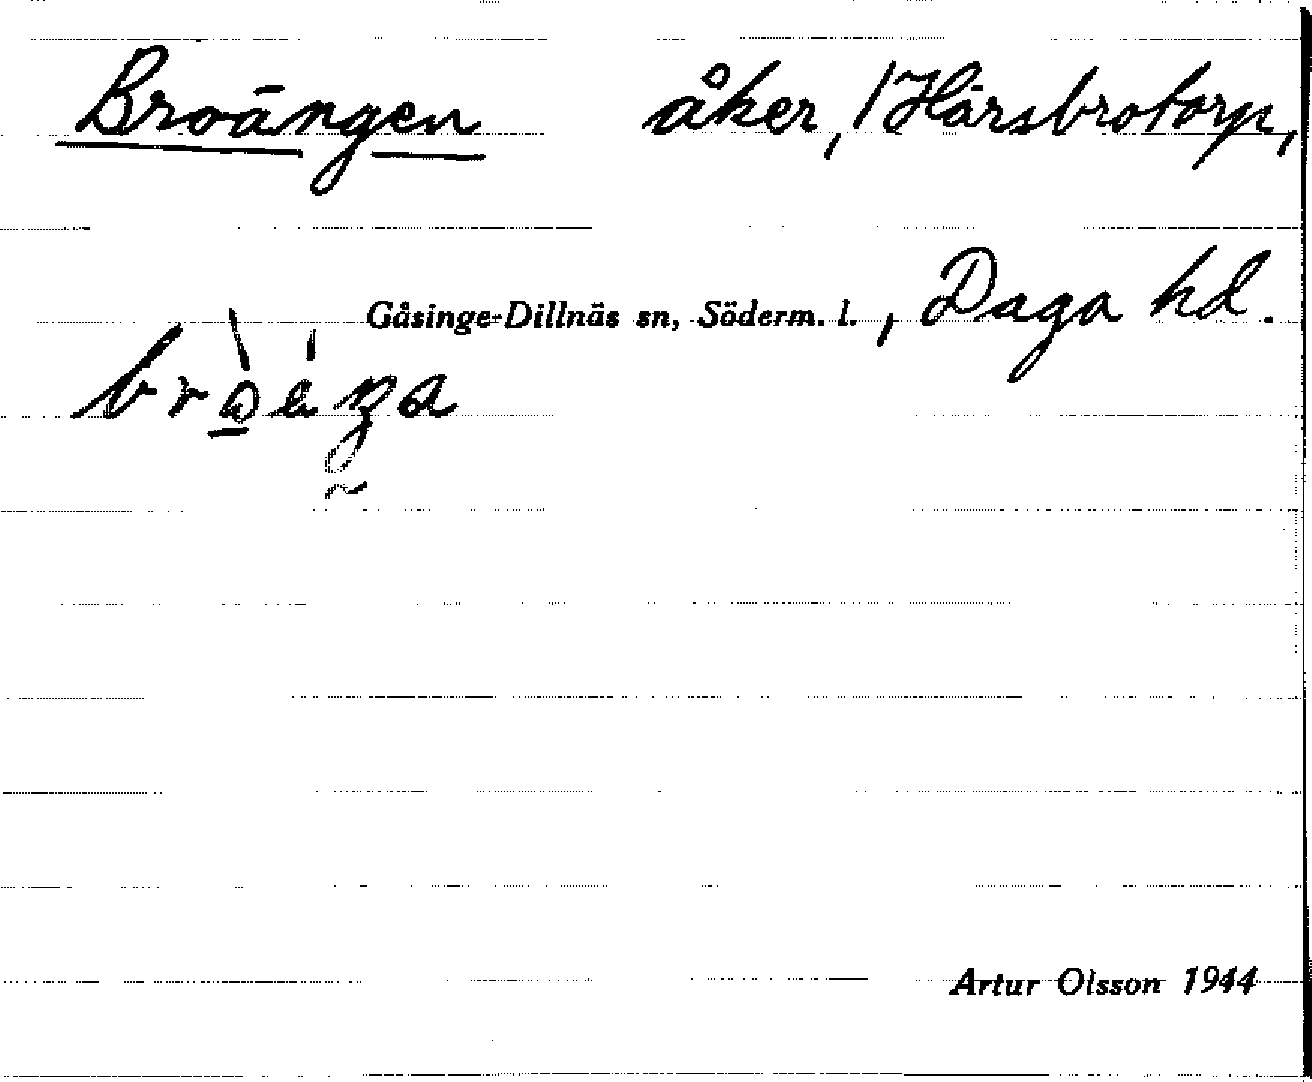 Broängen åker, / Hårsbrotorp,
Gåsinge-Dillnäs sn, Söderm. l. , Daga hd.
Artur Olsson 1944